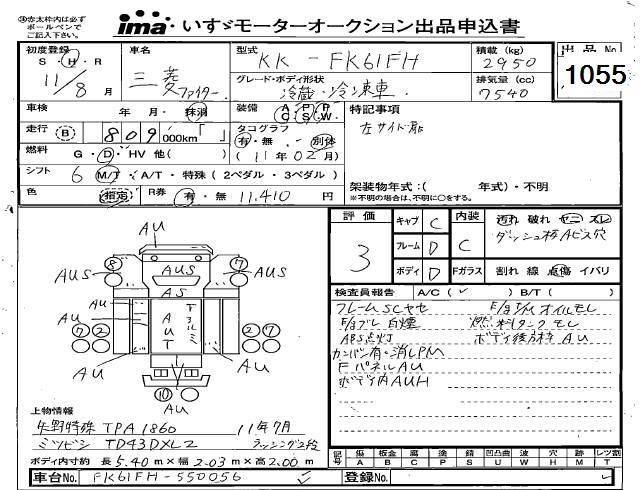 ※赤太枠内は必ず
ボールペンで
ご記入下さい。
ima いすゞモーターオークション出品申込書
初度登録 S・H・R 11/8月
車名 三菱 ファイター
型式 KK-FK61FH
積載(kg) 2950
出品No 1055
グレード・ボディ形状 冷蔵・冷凍車
排気量(cc) 7540
車検 年 月・抹消
装備 AC PS PW
特記事項
左サイド扉
走行 B 809 000km「 」
タコグラフ 有・無 別体
燃料 G・D・HV 他( ) (11年02月)
シフト 6 M/T・A/T・特殊(2ペダル・3ペダル)
架装物年式:( 年式)・不明
※不明の場合は、不明に○をする。
色 指定 R券 有・無 11,410円
評価 3
キャブ C
フレーム D
ボディ D
内装 C
汚れ 破れ ヤニ スレ
ダッシュ板Aビス穴
Fガラス 割れ 線 点傷 イバリ
検査員報告 A/C(✓) B/T( )
フレームSCヤセ
E/gブレ 白煙
ABS点灯
カンバン有・消しPM
FパネルAU
ボディ内AUH
E/g T/M オイルモレ
燃料タンクモレ
ボディ後方枠AU
AU
⑧ ⑦
AUS AUS AUS
AS
AU AUT AU
AU
⑦② ②⑦
AU AU
⑩ AU
上物情報
矢野特殊 TPA1860 11年7月
ミツビシ TD43DXL2 ラッシング2段
ボディ内寸約 長5.40m×幅2.03m×高2.00m
記号 傷A 板金B 腐C 塗P 錆S 凹凸曲U 波W 穴H 跡M レツ割T
車台No. FK61FH-550056
登録No.